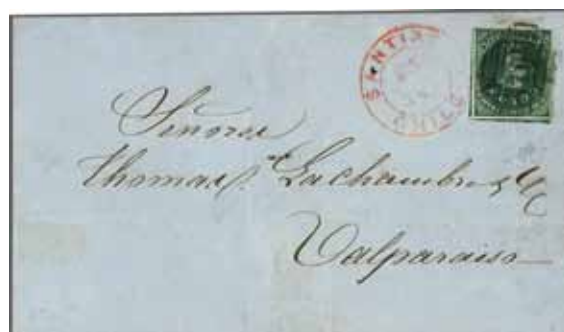 SANTIA
CHILE
Señores
Thomas Lachambre y Ca
Valparaiso